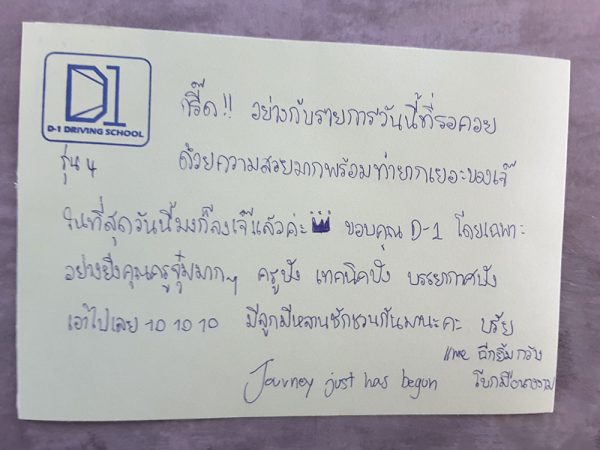 D1
D-1 DRIVING SCHOOL
กรี๊ด!! อย่างกับรายการวันนี้ที่รอคอย
รุ่น 4 ด้วยความสวยมากพร้อมท่ายากเยอะของเจ๊
ในที่สุดวันนี้มงก็ลงเจ๊แล้วค่ะ ขอบคุณ D-1 โดยเฉพาะ
อย่างยิ่งคุณครูจุ๋มมากๆ ครูปัง เทคนิคปัง บรรยากาศปัง
เอาไปเลย 10 10 10 มีลูกมีหลานชักชวนกันมานะคะ บรัย
และ ฉีกยิ้มกว้าง
Journey just has begun โบกมือนางงาม